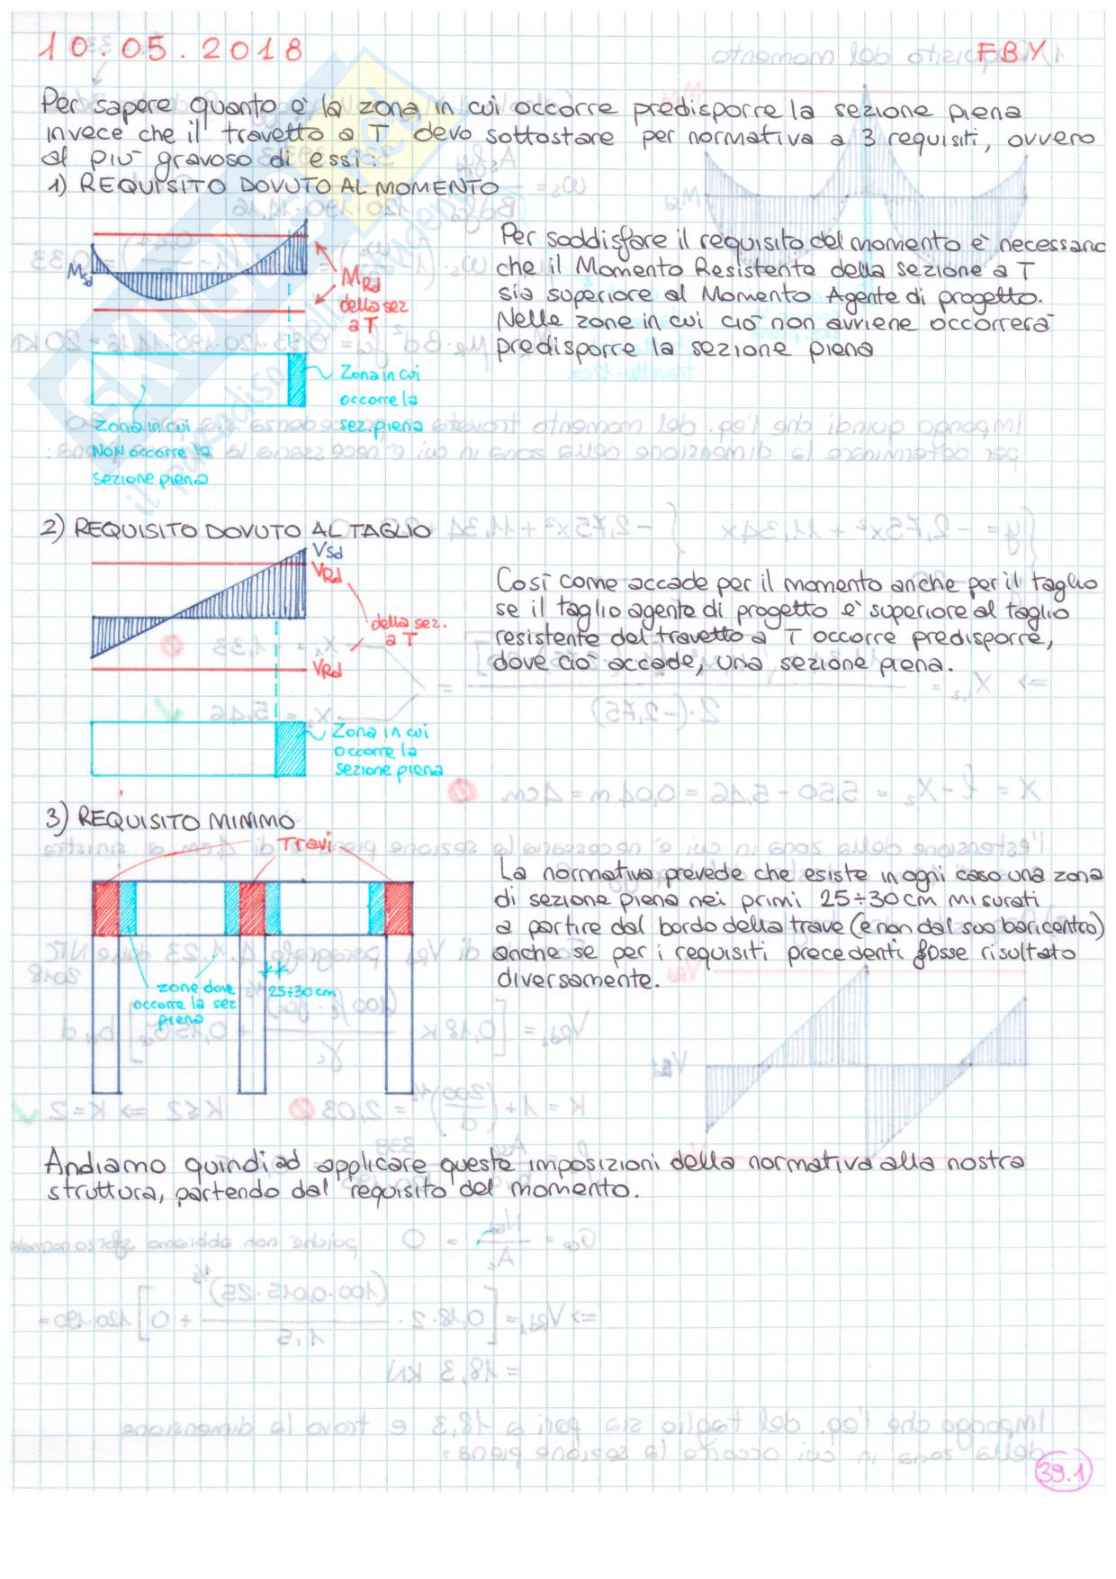 10.05.2018 FBY
Per sapere quanto è la zona in cui occorre predisporre la sezione piena
invece che il travetto a T devo sottostare per normativa a 3 requisiti, ovvero
al più gravoso di essi:
1) REQUISITO DOVUTO AL MOMENTO
Msd
MRd
della sez
a T
Zona in cui
occorre la
sez. piena
Zona in cui
NON occorre la
sezione piena
Per soddisfare il requisito del momento è necessario
che il Momento Resistente della sezione a T
sia superiore al Momento Agente di progetto.
Nelle zone in cui ciò non avviene occorrerà
predisporre la sezione piena
2) REQUISITO DOVUTO AL TAGLIO
Vsd
VRd
della sez.
a T
VRd
Zona in cui
occorre la
sezione piena
Così come accade per il momento anche per il taglio
se il taglio agente di progetto è superiore al taglio
resistente del travetto a T occorre predisporre,
dove ciò accade, una sezione piena.
3) REQUISITO MINIMO
Travi
zone dove
occorre la sez
piena
25÷30 cm
La normativa prevede che esiste in ogni caso una zona
di sezione piena nei primi 25÷30 cm misurati
a partire dal bordo della trave (e non dal suo baricentro)
anche se per i requisiti precedenti fosse risultato
diversamente.
Andiamo quindi ad applicare queste imposizioni della normativa alla nostra
struttura, partendo dal requisito del momento.
39.1